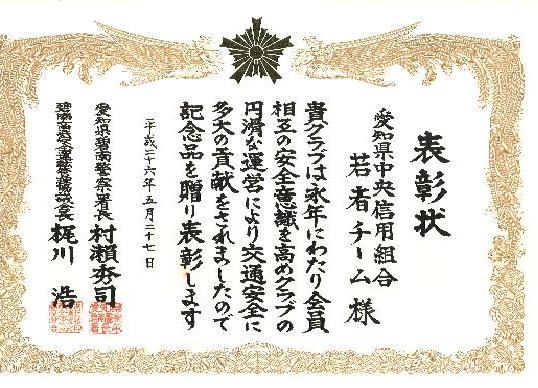 表彰状
愛知県中央信用組合
若者チーム様
貴クラブは永年にわたり会員
相互の安全意識を高めクラブの
円滑な運営により交通安全に
多大の貢献をされましたので
記念品を贈り表彰します
平成二十六年五月二十七日
愛知県碧南警察署長 村瀬秀司
梶川 浩